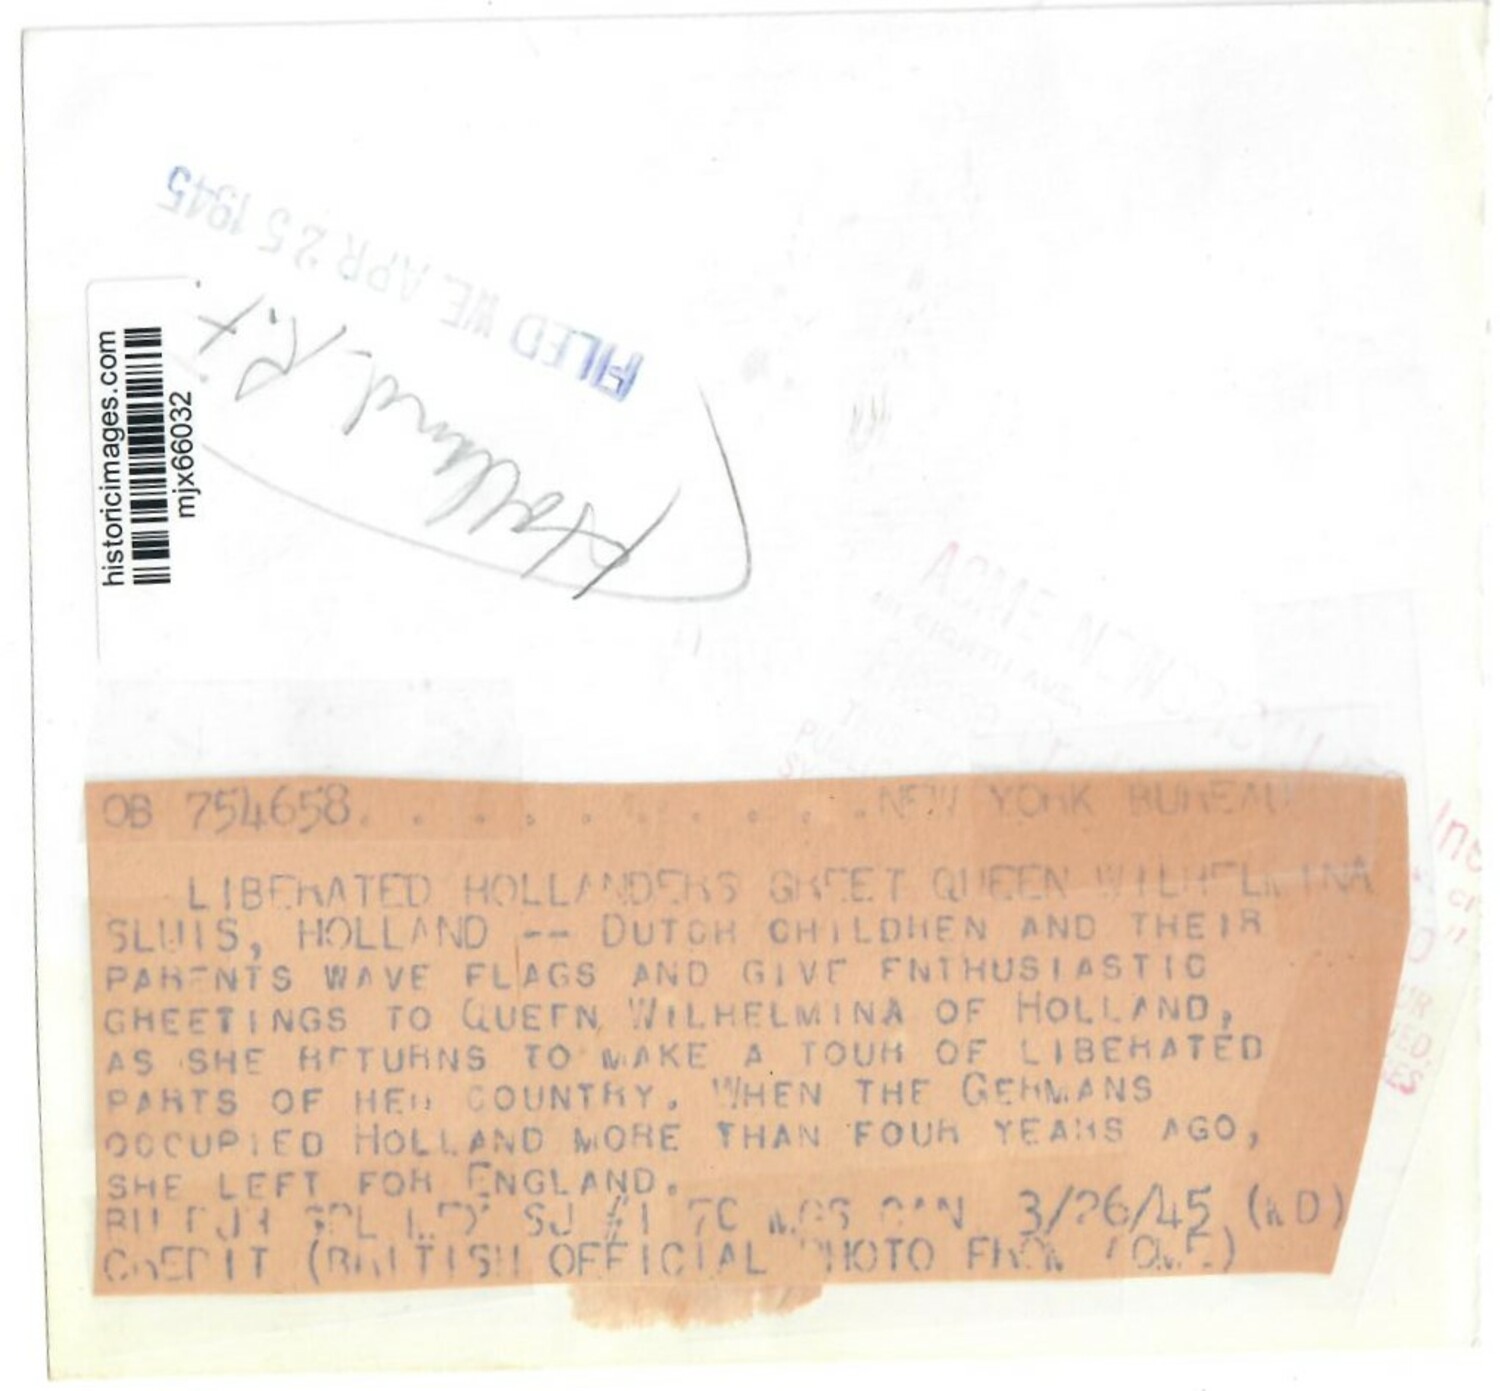 FILED WE APR 25 1945
Holland, R.t.
historicimages.com
mjx66032
ACME NEWSPICTURES
OB 754658. . . . . . . . . . .NEW YORK BUREAU
LIBERATED HOLLANDERS GREET QUEEN WILHELMINA
SLUIS, HOLLAND -- DUTCH CHILDREN AND THEIR
PARENTS WAVE FLAGS AND GIVE ENTHUSIASTIC
GREETINGS TO QUEEN WILHELMINA OF HOLLAND,
AS SHE RETURNS TO MAKE A TOUR OF LIBERATED
PARTS OF HER COUNTRY. WHEN THE GERMANS
OCCUPIED HOLLAND MORE THAN FOUR YEARS AGO,
SHE LEFT FOR ENGLAND.
SJ #1 CAN 3/26/45 (RD)
CREDIT (BRITISH OFFICIAL PHOTO FROM ACME)